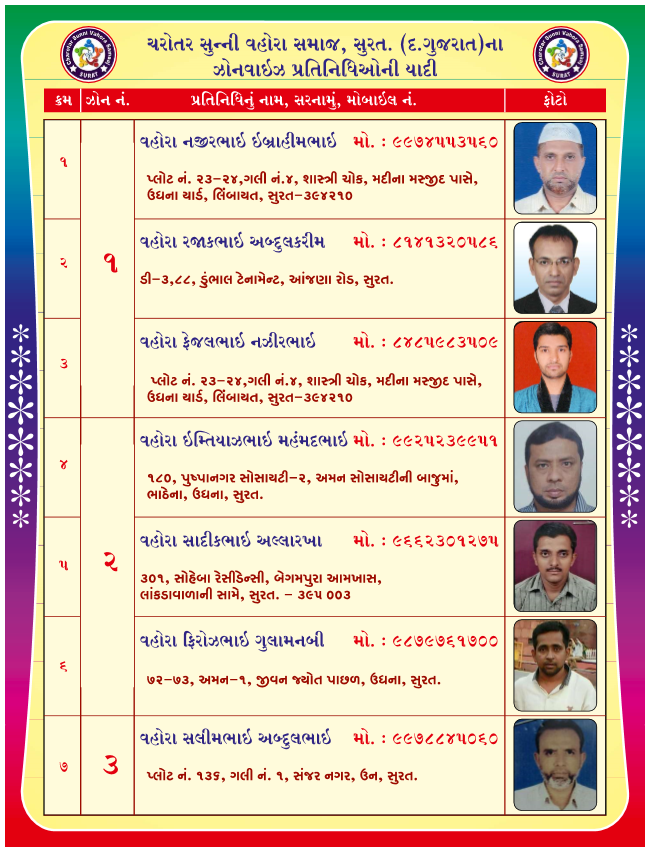 Charotar Sunni Vahora Samaj
SURAT
ચરોતર સુન્ની વહોરા સમાજ, સુરત. (દ.ગુજરાત)ના
ઝોનવાઇઝ પ્રતિનિધિઓની યાદી
Charotar Sunni Vahora Samaj
SURAT
ક્રમ ઝોન નં. પ્રતિનિધિનું નામ, સરનામું, મોબાઇલ નં. ફોટો
૧
૧
વહોરા નજીરભાઇ ઇબ્રાહીમભાઇ મો. : ૯૯૭૪૫૫૩૫૬૦
પ્લોટ નં. ૨૩-૨૪,ગલી નં.૪, શાસ્ત્રી ચોક, મદીના મસ્જીદ પાસે,
ઉધના યાર્ડ, લિંબાયત, સુરત-૩૯૪૨૧૦
૨
વહોરા રજાકભાઇ અબ્દુલકરીમ મો. : ૮૧૪૧૩૨૦૫૮૬
ડી-૩,૮૮, ડુંભાલ ટેનામેન્ટ, આંજણા રોડ, સુરત.
૩
વહોરા ફેજલભાઇ નઝીરભાઇ મો. : ૮૪૮૫૯૮૩૫૦૯
પ્લોટ નં. ૨૩-૨૪,ગલી નં.૪, શાસ્ત્રી ચોક, મદીના મસ્જીદ પાસે,
ઉધના યાર્ડ, લિંબાયત, સુરત-૩૯૪૨૧૦
૪
૨
વહોરા ઇમ્તિયાઝભાઇ મહંમદભાઇ મો. : ૯૯૨૫૨૩૯૯૫૧
૧૮૦, પુષ્પાનગર સોસાયટી-૨, અમન સોસાયટીની બાજુમાં,
ભાઠેના, ઉધના, સુરત.
૫
વહોરા સાદીકભાઇ અલ્લારખા મો. : ૯૬૬૨૩૦૧૨૭૫
૩૦૧, સોહેબા રેસીડેન્સી, બેગમપુરા આમખાસ,
લાંકડાવાળાની સામે, સુરત. - ૩૯૫ ૦૦૩
૬
વહોરા ફિરોઝભાઇ ગુલામનબી મો. : ૯૮૭૯૭૬૧૭૦૦
૭૨-૭૩, અમન-૧, જીવન જ્યોત પાછળ, ઉધના, સુરત.
૭
૩
વહોરા સલીમભાઇ અબ્દુલભાઇ મો. : ૯૯૭૮૮૪૫૦૬૦
પ્લોટ નં. ૧૩૬, ગલી નં. ૧, સંજર નગર, ઉન, સુરત.